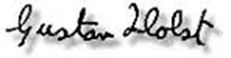 Gustav Holst